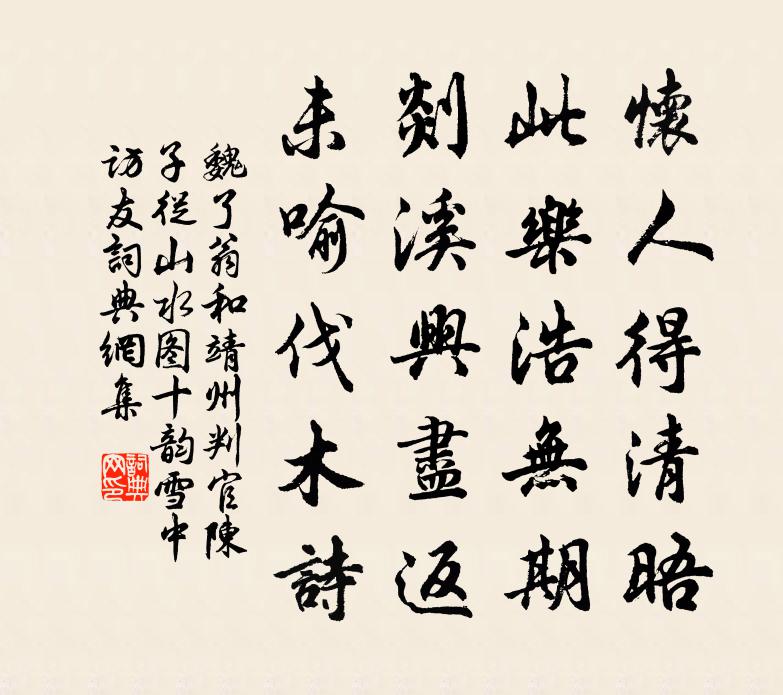 懷人得清晤
此樂浩無期
剡溪興盡返
未喻伐木詩
魏了翁和靖州判官陳
子從山水图十韵雪中
访友詞典網集
詞典网印